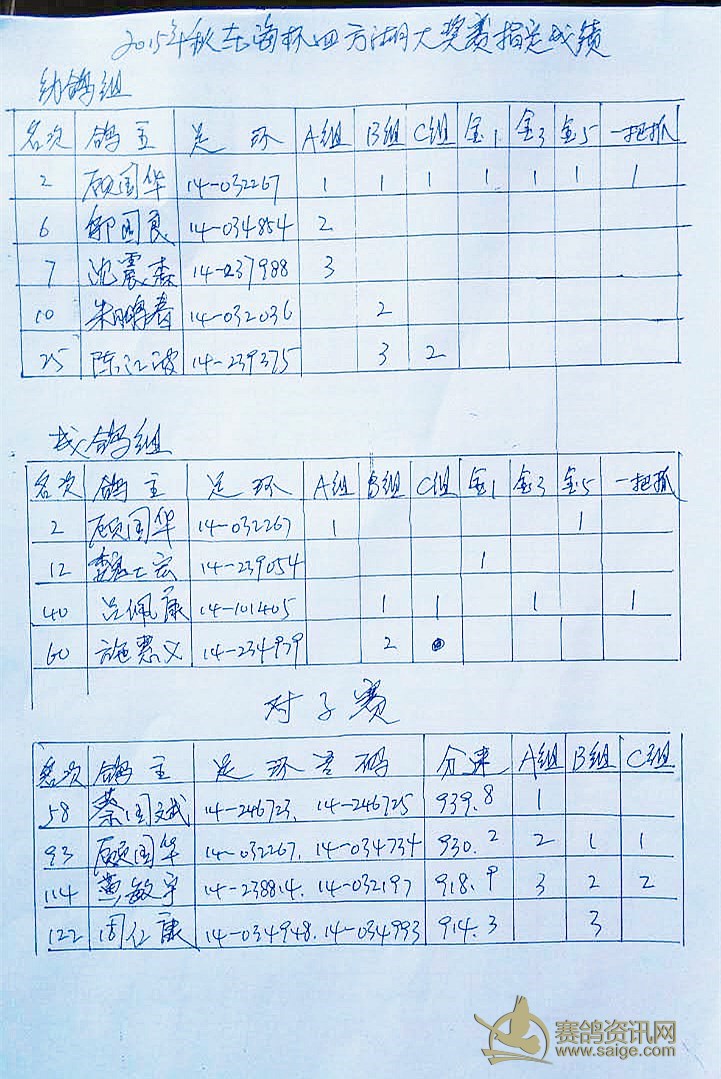 2015年秋东海杯四方湖大奖赛指定成绩
幼鸽组
名次 鸽主 足环 A组 B组 C组 金1 金3 金5 一把抓
2 顾国华 14-032267 1 1 1 1 1 1 1
6 邹国良 14-034854 2
7 沈震森 14-237988 3
10 朱鹏春 14-032036 2
25 陈江波 14-239375 3 2
成鸽组
名次 鸽主 足环 A组 B组 C组 金1 金3 金5 一把抓
2 顾国华 14-032267 1 1
12 宏 14-239054 1
40 吕佩康 14-101405 1 1 1 1
60 施惠义 14-234979 2
对子赛
名次 鸽主 足环号码 分速 A组 B组 C组
58 蔡国斌 14-246723. 14-246725 939.8 1
93 顾国华 14-032267. 14-034734 930.2 2 1 1
114 黄敏宇 14-238814. 14-032197 918.9 3 2 2
122 周仁康 14-034948. 14-034993 914.3 3
赛鸽资讯网
www.saige.com